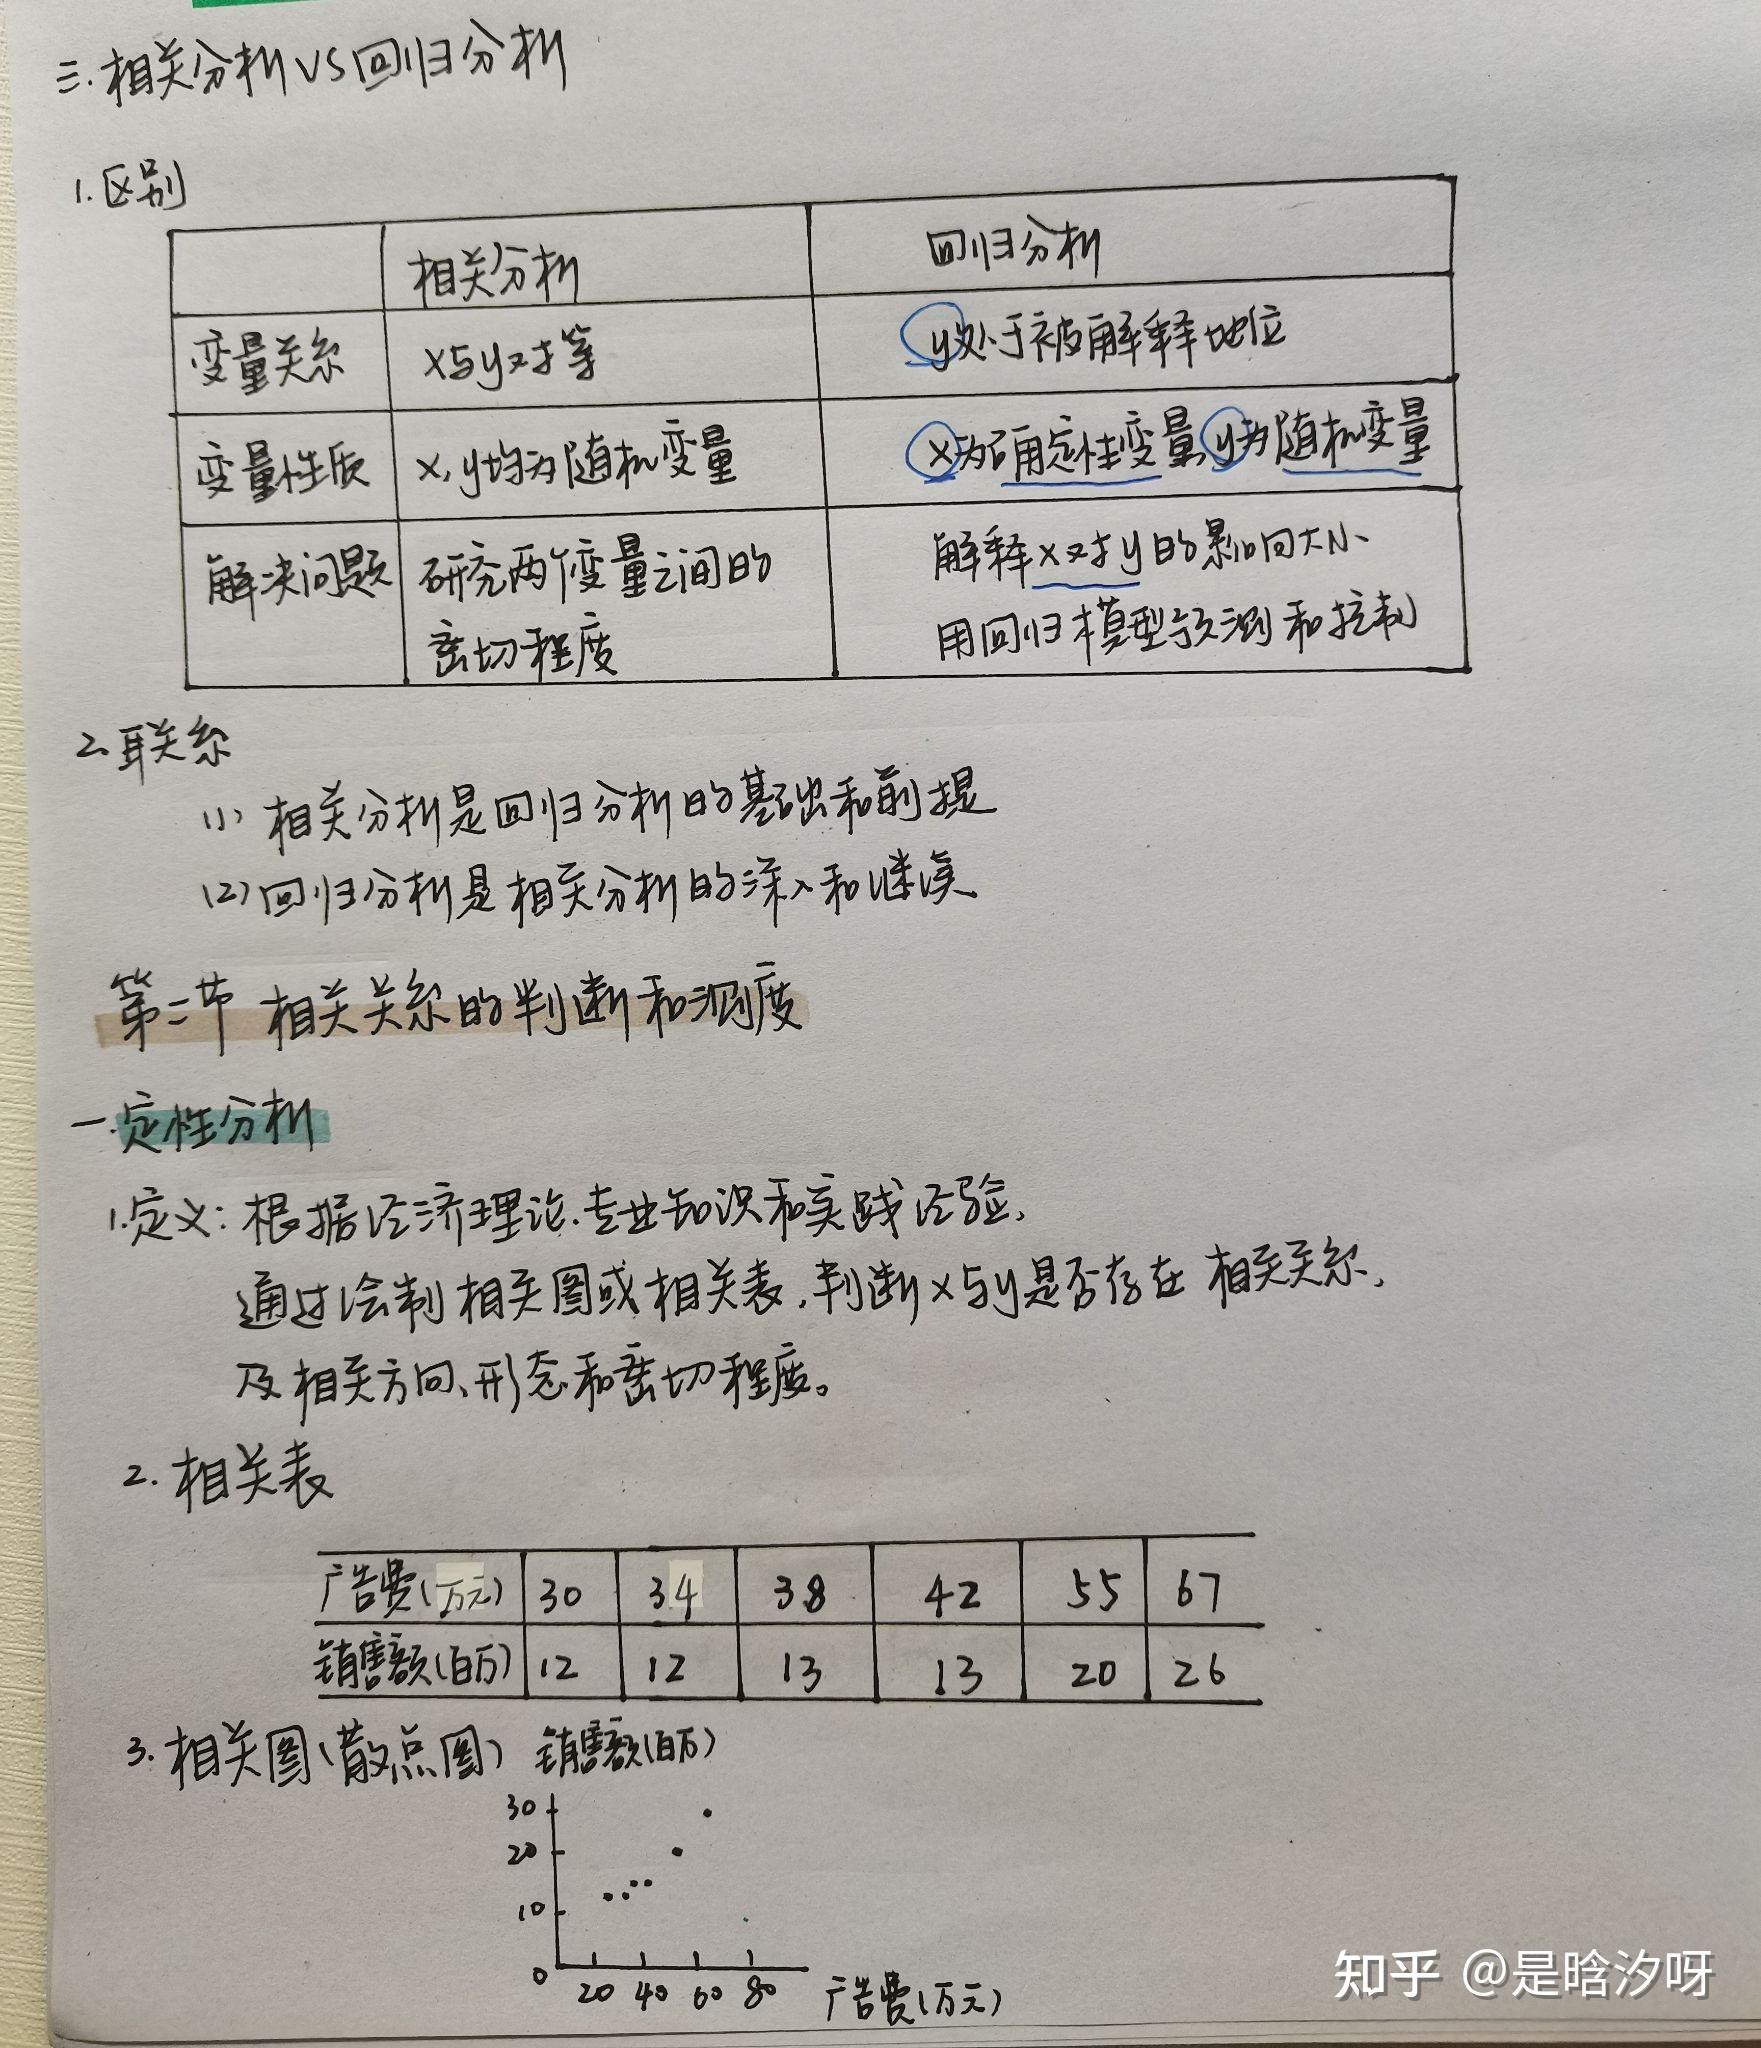 三.相关分析VS回归分析
1.区别
相关分析 回归分析
变量关系 x与y对等 y处于被解释地位
变量性质 x,y均为随机变量 x为确定性变量,y为随机变量
解决问题 研究两个变量之间的 解释x对y的影响大小、
密切程度 用回归模型预测和控制
2.联系
(1) 相关分析是回归分析的基础和前提
(2)回归分析是相关分析的深入和继续
第二节 相关关系的判断和测度
一.定性分析
1.定义:根据经济理论.专业知识和实践经验,
通过绘制相关图或相关表,判断x与y是否存在相关关系,
及相关方向、形态和密切程度。
2.相关表
广告费(万元) 30 34 38 42 55 67
销售额(百万) 12 12 13 13 20 26
3.相关图(散点图) 销售额(百万)
30
20
10
0 20 40 60 80 广告费(万元)
知乎 @是晗汐呀